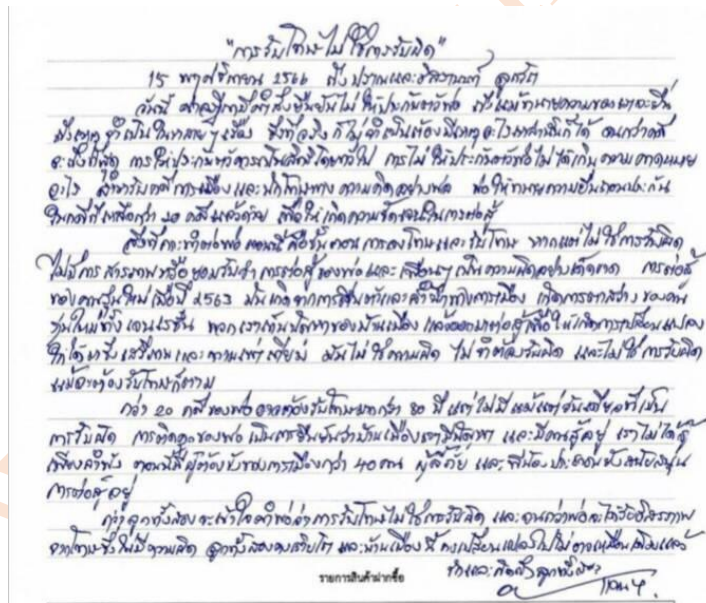 "การรับโทษไม่ใช่การรับผิด"
15 พฤศจิกายน 2566 ถึงปราณและอิสรานนท์ ลูกรัก
วันนี้ ศาลฎีกามีคำสั่งยืนยันไม่ให้ประกันตัวพ่อ ถึงแม้ทนายความของเราจะยื่น
มีเหตุจำเป็นในหลายๆเรื่อง ซึ่งที่จริงก็ไม่จำเป็นต้องมีเหตุอะไรมากมายก็ได้ จนกว่าคดี
จะถึงที่สุด การให้ประกันตัวควรเป็นสิทธิโดยทั่วไป การไม่ให้ประกันตัวพ่อไม่ได้เกินความคาดหมาย
อะไร สำหรับคดีการเมืองและนักโทษทางความคิดอย่างพ่อ พ่อให้ทนายความยื่นถอนประกัน
ในคดีที่เหลือกว่า 20 คดีแล้วด้วย เพื่อให้เกิดความชัดเจนในการต่อสู้
สิ่งที่กระทำต่อพ่อตอนนี้คือขั้นตอนการลงโทษและรับโทษ หากแต่ไม่ใช่การรับผิด
ไม่มีการสารภาพหรือยอมรับว่าการต่อสู้ของพ่อและเพื่อนๆเป็นความผิดอย่างเด็ดขาด การต่อสู้
ของคนรุ่นใหม่เมื่อปี 2563 มันเกิดจากการตื่นตัวและสำนึกทางการเมือง เกิดการตาสว่างของคน
รุ่นใหม่ทั้งเจนเรชั่น พวกเราเห็นปัญหาของบ้านเมือง และออกมาต่อสู้เพื่อให้เกิดการเปลี่ยนแปลง
ให้ได้มาซึ่งเสรีภาพและความเท่าเทียม มันไม่ใช่ความผิด ไม่จำต้องรับผิด และไม่ใช่การรับผิด
แม้จะต้องรับโทษก็ตาม
กว่า 20 คดีของพ่ออาจต้องรับโทษมากกว่า 80 ปี แต่ไม่มีแม้แต่วันเดียวที่เป็น
การรับผิด การติดคุกของพ่อเป็นการยืนยันว่าบ้านเมืองเรามีปัญหา และมีคนสู้อยู่ เราไม่ได้สู้
เพียงลำพัง ตอนนี้มีผู้ต้องขังทางการเมืองกว่า 40 คน ผู้ลี้ภัย และพี่น้องประชาชนยังสนับสนุน
การต่อสู้อยู่
กว่าลูกทั้งสองจะเข้าใจคำพ่อว่าการรับโทษไม่ใช่การรับผิด และจนกว่าพ่อจะได้รับอิสรภาพ
จากโทษซึ่งไม่มีความผิด ลูกทั้งสองคงเติบโต และบ้านเมืองนี้คงเปลี่ยนแปลงไปไม่อาจเหมือนเดิมแล้ว
รักและคิดถึงลูกทั้งสอง
รายการสินค้าฝากซื้อ